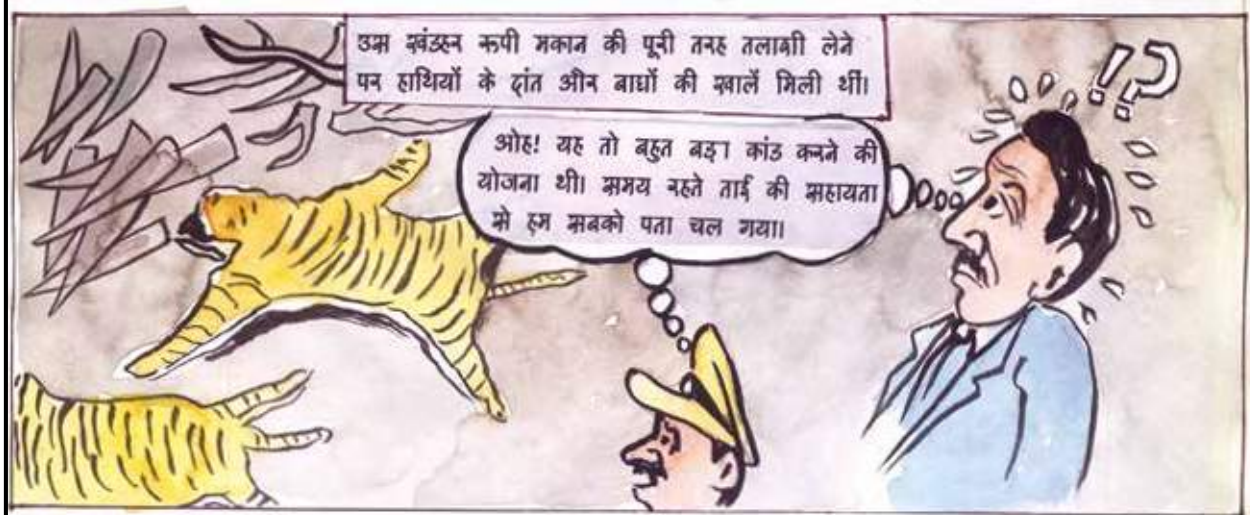 उस खंडहर रूपी मकान की पूरी तरह तलाशी लेने
पर हाथियों के दांत और बाघों की खालें मिली थीं।
!?
ओह! यह तो बहुत बड़ा कांड करने की
योजना थी। समय रहते ताई की सहायता
से हम सबको पता चल गया।